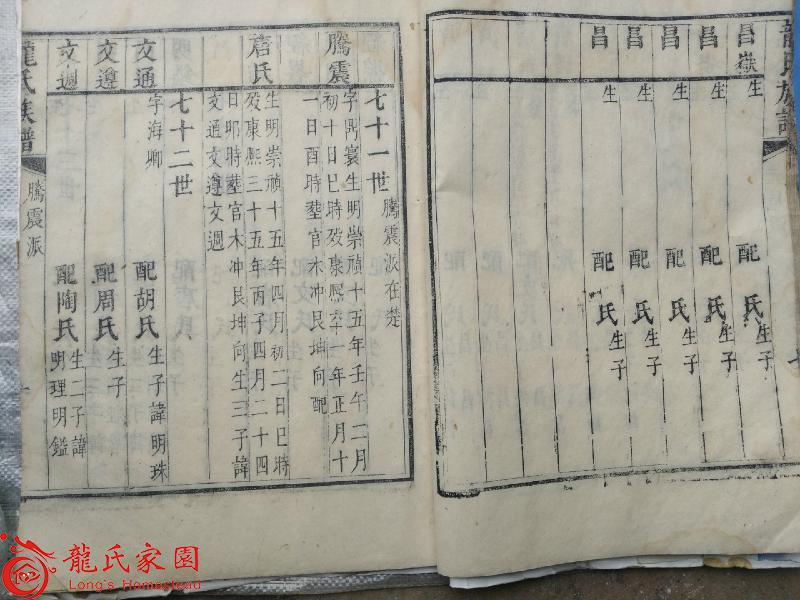 龍氏族譜
昌嶽 生 配 氏 生子
昌 生 配 氏 生子
昌 生 配 氏 生子
昌 生 配 氏 生子
昌 生 配 氏 生子
七十一世 騰震派在楚
騰震 字鼎寰生明崇禎十五年壬午二月
初十日巳時歿康熙六十一年正月十
一日酉時塟官木冲艮坤向配
唐氏 生明崇禎十五年四月初二日巳時
歿康熙三十五年丙子四月二十四
日卯時塟官木冲艮坤向生三子諱
文通文遵文週
七十二世
文通 字海卿 配胡氏 生子諱明珠
文遵 配周氏 生子
文週 配陶氏 生二子諱明理明鑑
龍氏族譜 騰震派 一
龍氏家園
Long's Homestead